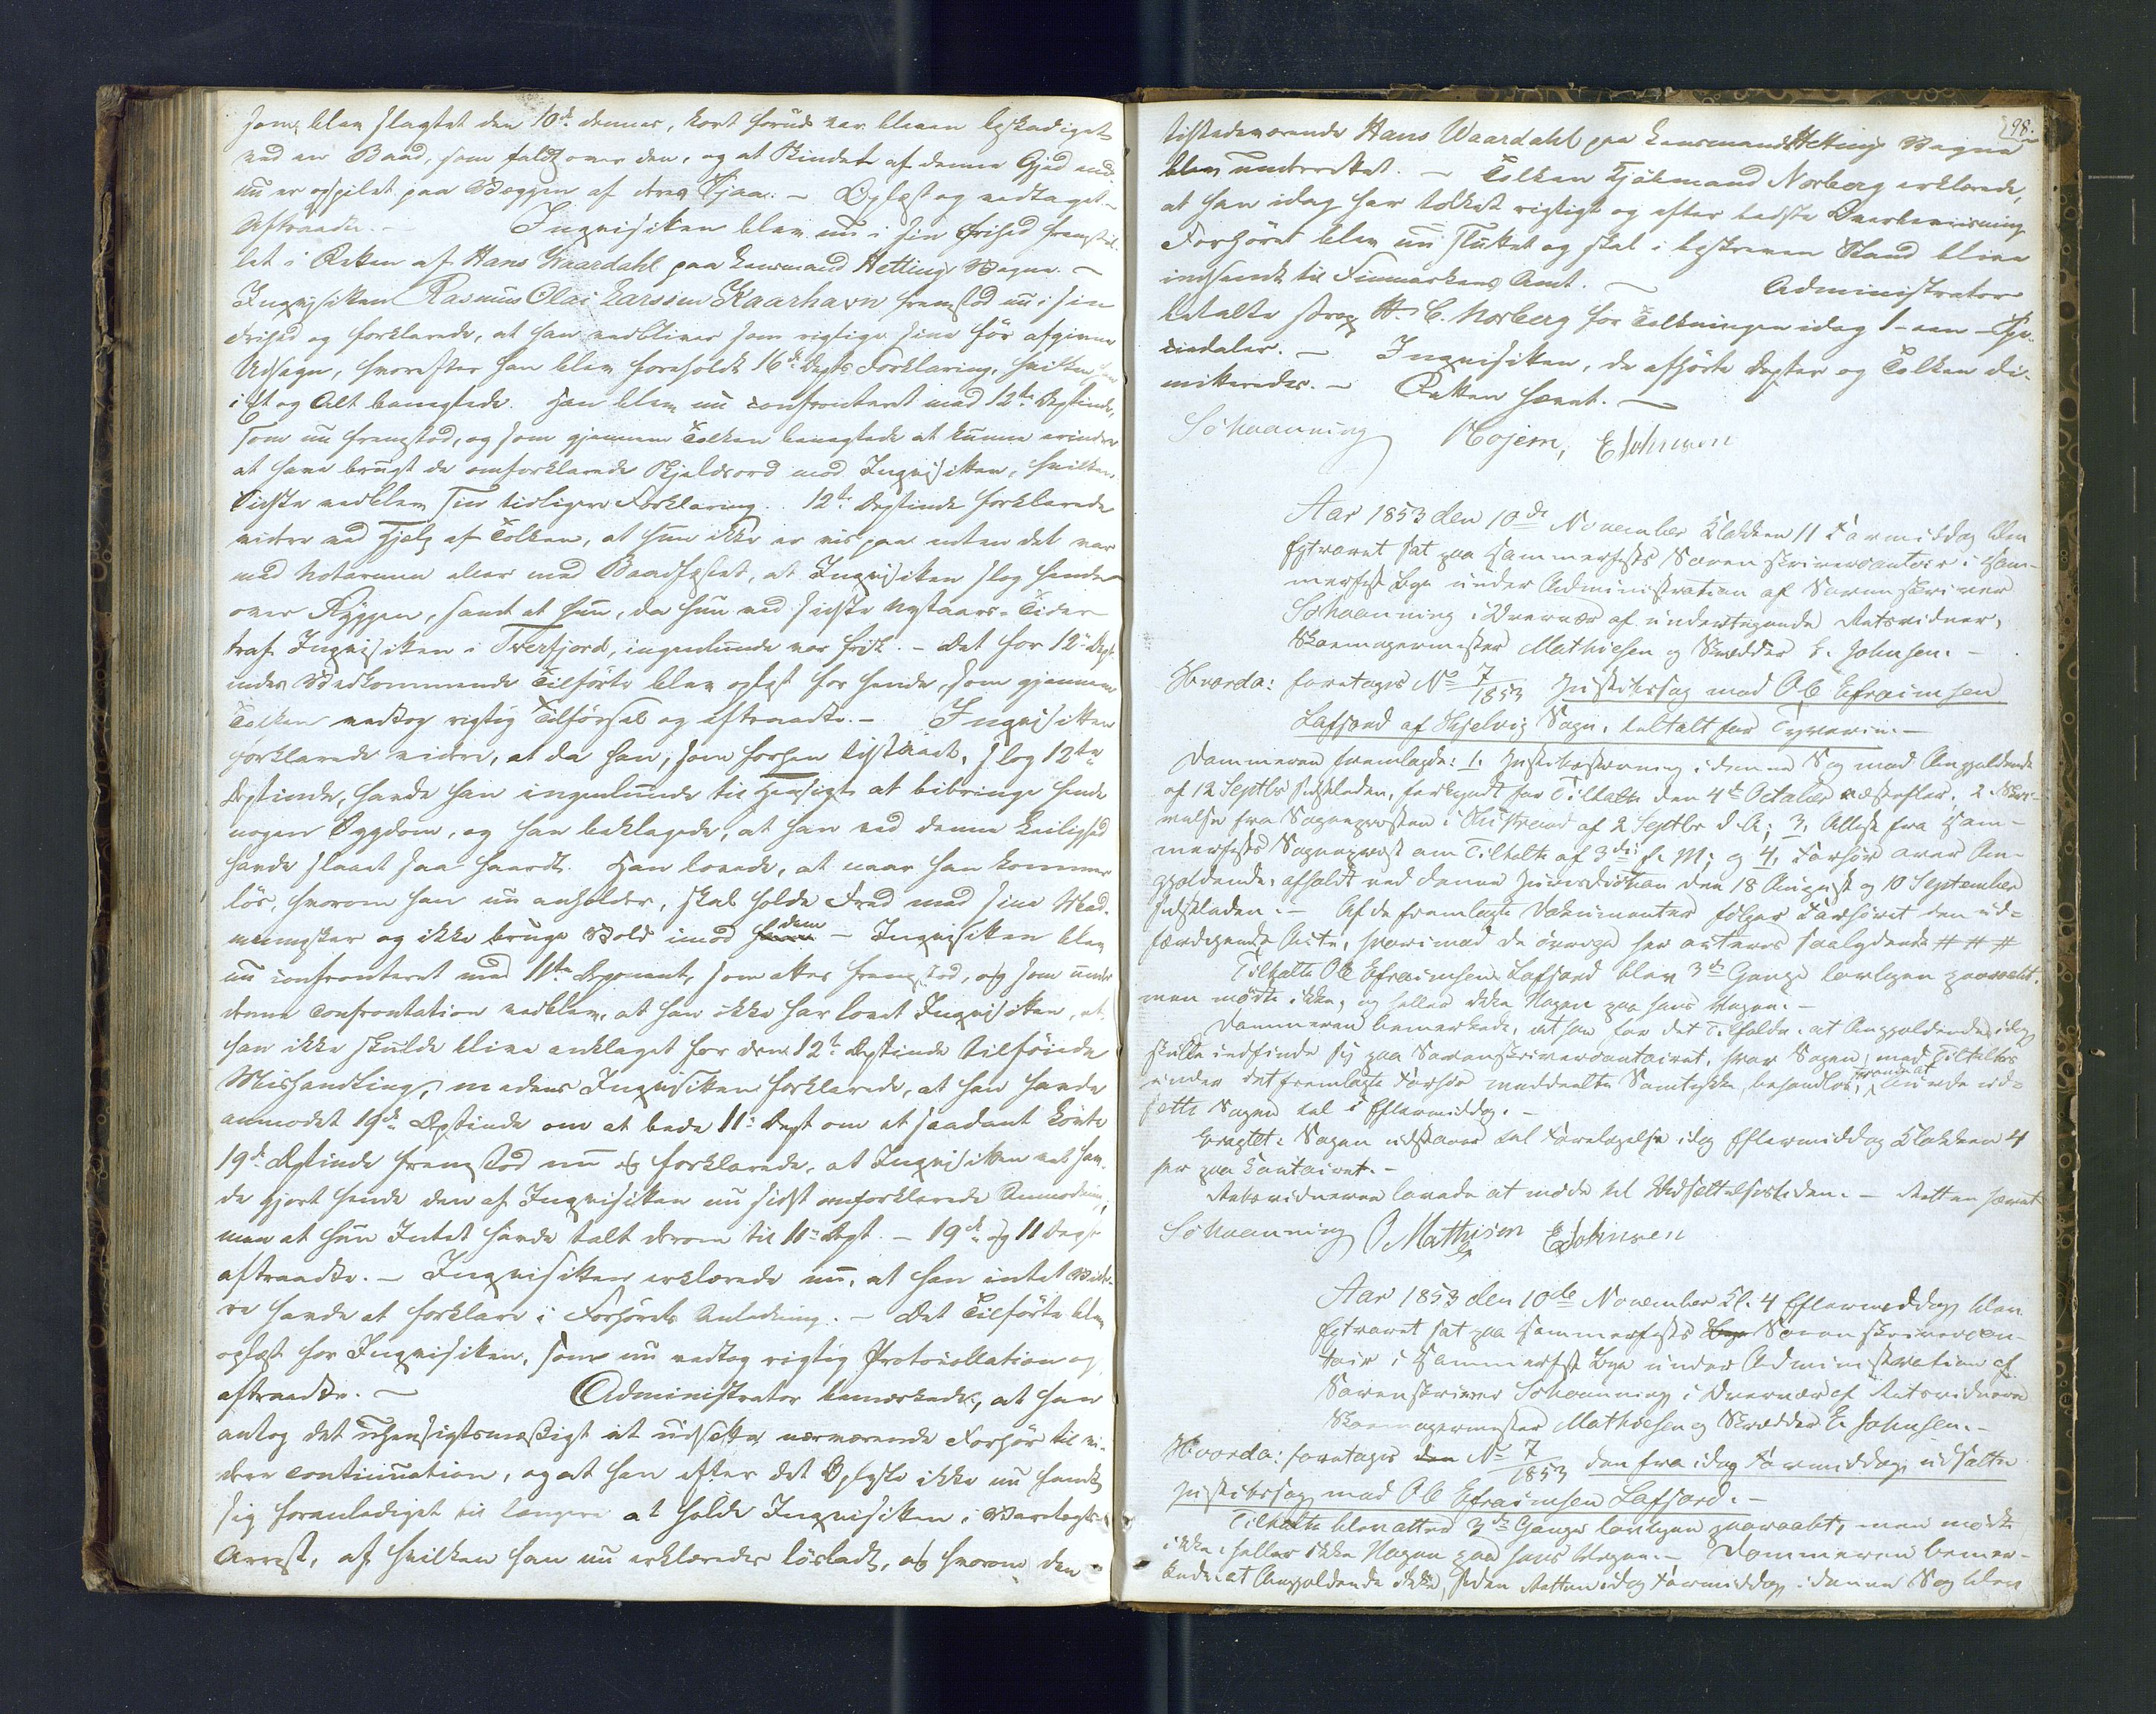 som blev slagtet den 10de dennes, kort forud var bleven beskadiget
ved en Baad, som faldt over den, og at Skindet af denne Gjed end-
nu er opspilet paa Væggen af dens Fjaa. – Oplæst og vedtaget –
Aftraadte. – Inqvisiten blev nu i sin Frihed fremstil-
let i Retten af Hans Waardahl paa Lensmand Hetting Vegne. –
Inqvisiten Rasmus Olai Larssen Kaarhavn fremstod nu i sin
Frihed og forklarede, at han vedbliver som rigtige sine før afgivne
Udsagn, hvorefter han blev foreholdt 16de Depts Forklaring, hvilken han
i Et og Alt benegtede. Han blev nu confronteret med 12te Deptinde,
som nu fremstod, og som gjennem Tolken benegtede at kunne erindre
at have brugt de omforklarede Skjeldsord mod Inqvisiten, hvilken
Sidste vedblev sin tidligere Forklaring. 12te Deptinde forklarede
videre ved Hjelp af Tolken, at hun ikke er vis paa enten det var
med Notarmen eller med Baadfæstet, at Inqvisiten slog hende
over Ryggen, samt at hun, da hun ved sidste Nytaars-Tider
traf Inqvisiten i Tverfjord, ingenlunde var frisk. – Det for 12te Dept-
indes Vedkommende Tilførte blev oplæst for hende, som gjennem
Tolken vedtog rigtig Tilførsel og aftraadte. – Inqvisiten
forklarede videre, at da han, som forhen tilstaaet, slog 12te
Deptinde, havde han ingenlunde til Hensigt at bibringe hende
nogen Sygdom, og han beklagede, at han ved denne Leilighed
havde slaaet saa haardt. Han lovede, at naar han kommer
løs, hvorom han nu anholder, skal holde Fred med sine Med-
mennesker og ikke bruge Vold imod dem – Inqvisiten blev
nu confronteret med 11te Deponent, som atter fremstod, og som under
denne Confrontation vedblev, at han ikke har lovet Inqvisiten, at
han ikke skulde blive anklaget for den 12te Deptinde tilføiede
Mishandling, medens Inqvisiten forklarede, at han havde
anmodet 19de Deptinde om at bede 11te Dept om at saadant
19de Deptinde fremstod nu og forklarede, at Inqvisiten vel hav-
de gjort hende den af Inqvisiten nu sidst omforklarede Anmodning,
men at hun Intet havde talt derom til 11te Dept. – 19de og 11 Dept
aftraadte. – Inqvisiten erklærede nu, at han intet Vide-
re havde at forklare i Forhørets Anledning. – Det Tilførte blev
oplæst for Inqvisiten, som nu vedtog rigtig Protocollation og
aftraadte. – Administrator bemærkede, at han
antog det uhensigtsmæssigt at udsætte nærværende Forhør til vi-
dere Continuation, og at han efter det Oplyste ikke nu fandt
sig foranlediget til længere at holde Inqvisiten i Varetægts-
Arrest, af hvilken han nu erklæredes løsladt, og hvorom den
98.
tilstedeværende Hans Waardahl paa Lensmand Hetting Vegne
blev underrettet. – Tolken Kjøbmand Norberg erklærede,
at han idag har tolket rigtigt og efter bedste Overbeviisning
Forhøret blev nu sluttet og skal i beskreven Stand blive
indsendt til Finmarkens Amt. – Administrator
betalte strax H. C. Norberg for Tolkningen idag 1 – een – Spe-
ciedaler. – Inqvisiten, de afhørte Depter og Tolken di-
mitteredes. – Retten hævet. –
Schaanning Rojem, E Johnsen
Aar 1853 den 10de November Klokken 11 Formiddag blev
Extraret sat paa Hammerfests Sorenskrivercontoir i Ham-
merfest Bye under Administration af Sorenskriver
Schaanning i Overvær af undertegnede Retsvidner,
Skomagermester Mathiesen og Skrædder E. Johnsen. –
Hvorda: foretages No 7/1853 Justitssag mod Ole Efraimsen
Lafjord af Kjelvig Sogn, tiltalt for Tyverie. –
Dommeren fremlagde: 1. Justitsstævning i denne Sag mod Angjeldende
af 12 Septbr sidstleden, forkyndt for Tiltalte den 4de October næstefter, 2. Skri-
velse fra Sognepresten i Kistrand af 2 Septbr d. A; 3, Attest fra Ham-
merfests Sogneprest om Tiltalte af 3die s. M; og 4, Forhør over An-
gjeldende, afholdt ved denne Jurisdiction den 18 August og 10 September
sidstleden. – Af de fremlagte Documenter følger Forhøret den ud-
færdigende Acte, hvorimod de øvrige her acteres saalydende # # #
Tiltalte Ole Efraimsen Lafjord blev 3de Gange lovligen paaraabt,
men mødte ikke, og heller ikke Nogen paa hans Vegne. –
Dommeren bemerkede, at han for det Tilfælde, at Angjeldende idag
skulle indfinde sig paa Sorenskrivercontoiret, hvor Sagen, med Tiltaltes
under det fremlagte Forhør meddeelte Samtykke, behandles, fandt at burde ud-
sætte Sagen til i Eftermiddag. –
Eragtet: Sagen udstaaer til Foretagelse idag Eftermiddag Klokken 4
her paa Contoiret. –
Retsvidnerne lovede at møde til Udsættelsestiden. – Retten hævet
Schaanning O Mathisen E Johnsen
Aar 1853 den 10de November Kl. 4 Eftermiddag blev
Extraret sat paa Hammerfests Sorenskrivercon-
toir i Hammerfest Bye under Administration af
Sorenskriver Schaanning i Overvær af Retsvidnerne
Skomagermester Mathiesen og Skrædder E. Johnsen. –
Hvorda: foretages den No 7/1853 den fra idag Formiddag udsatte
Justitssag mod Ole Efraimsen Lafjord. –
Tiltalte blev atter 3de Gange lovligen paaraabt, men mødte
ikke, heller ikke Nogen paa hans Vegne. – Dommeren bemer-
kede, at Angjeldende ikke, siden Retten idag Formiddag i denne Sag blev